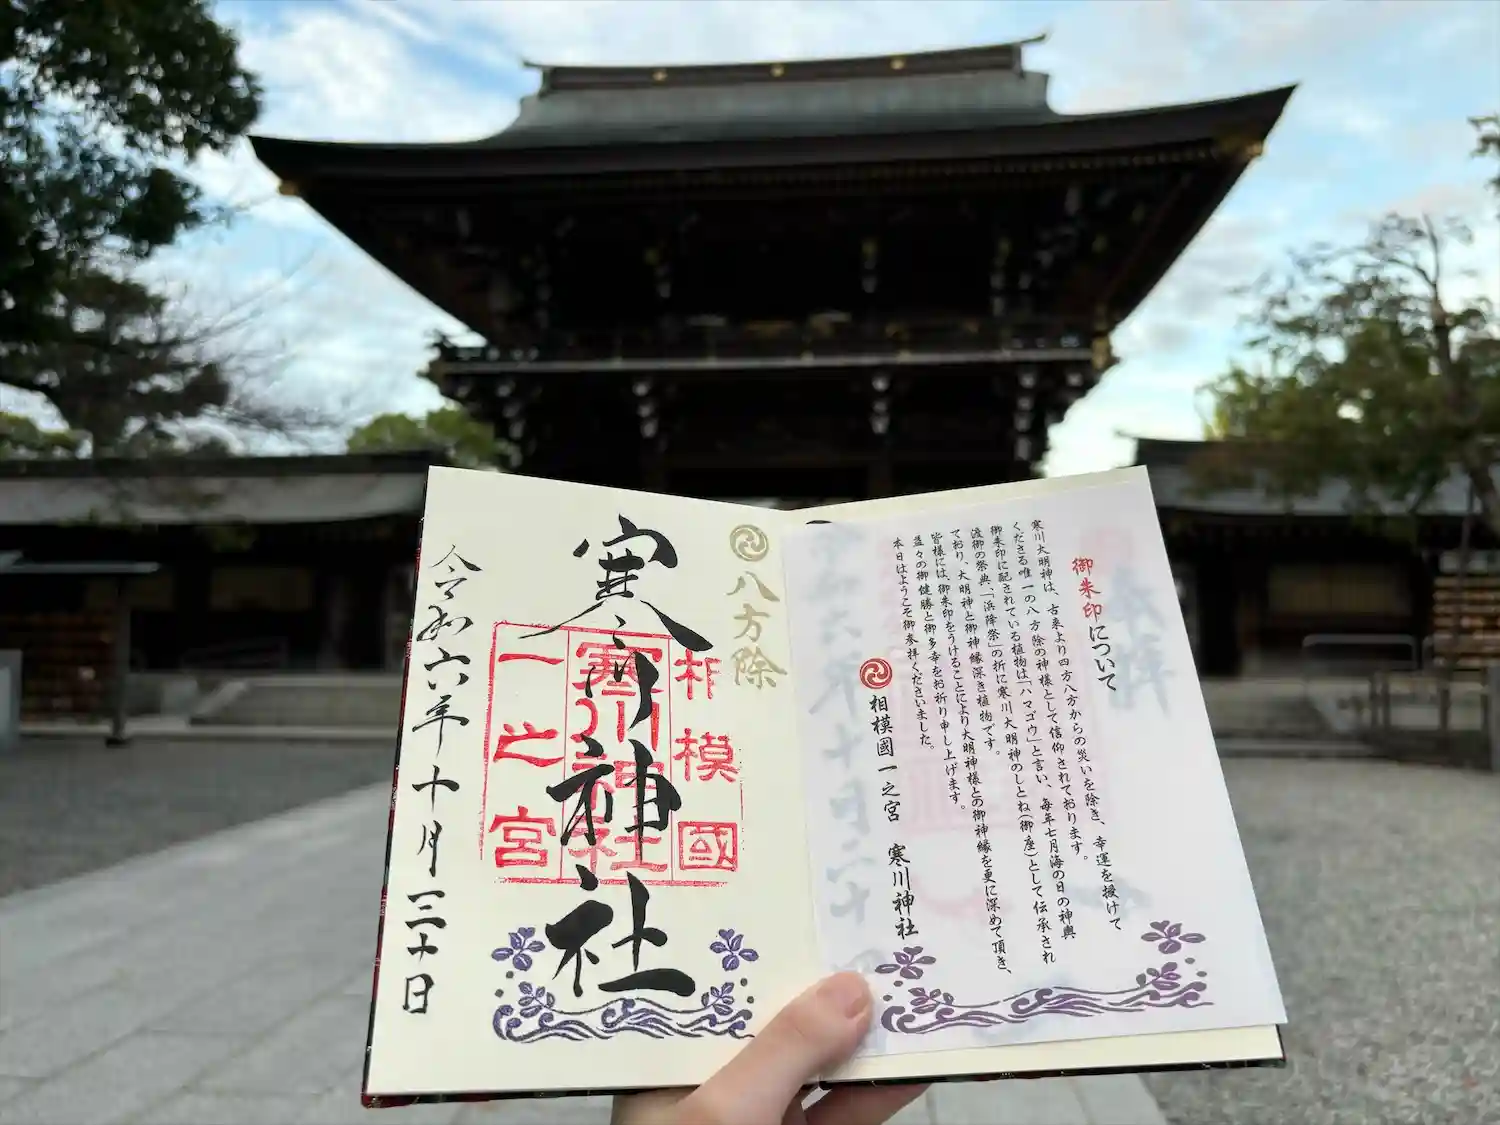 御朱印について
寒川大明神は、古来より四方八方からの災いを除き、幸運を授けて
くださる唯一の八方除の神様として信仰されております。
御朱印に配されている植物は「ハマゴウ」と言い、毎年七月海の日の神輿
渡御の祭典、「浜降祭」の折に寒川大明神のしとね(御座)として伝承され
ており、大明神と御神縁深き植物です。
皆様には、御朱印をうけることにより大明神様との御神縁を更に深めて頂き、
益々の御健勝と御多幸をお祈り申し上げます。
本日はようこそ御参拝くださいました。
相模國一之宮 寒川神社
八方除
相模國
寒川神社
一之宮
寒川神社
令和六年十月三十日